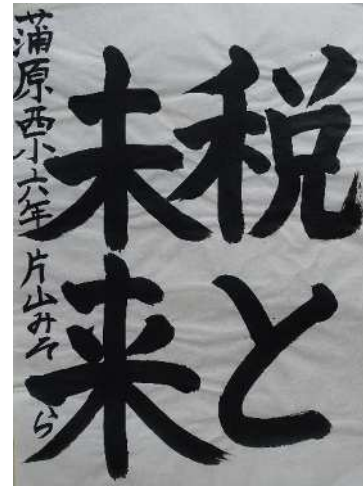 税と
未来
蒲原西小六年 片山みそら